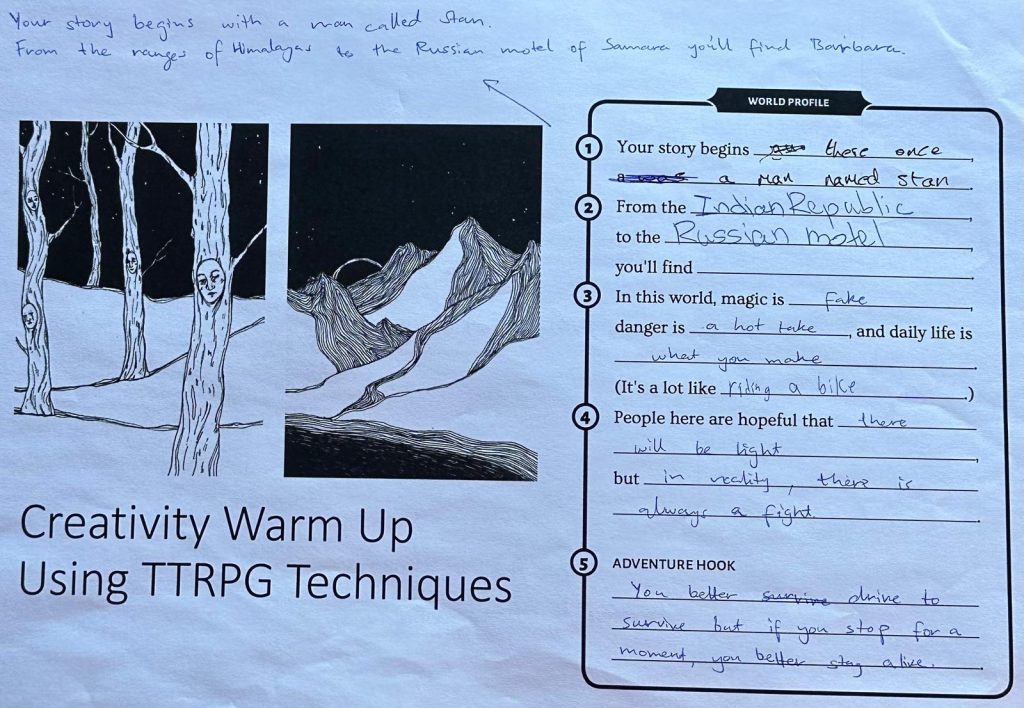 Your story begins with a man called Stan.
From the ranges of Himalayas to the Russian motel of Samara you'll find Barbara.
WORLD PROFILE
1 Your story begins there once,
a man named stan.
2 From the Indian Republic,
to the Russian motel,
you'll find
3 In this world, magic is fake,
danger is a hot take, and daily life is
what you make
(It's a lot like riding a bike.)
4 People here are hopeful that there
will be light,
but in reality, there is
always a fight.
5 ADVENTURE HOOK
You better survive drive to
survive but if you stop for a
moment, you better stay alive.
Creativity Warm Up
Using TTRPG Techniques